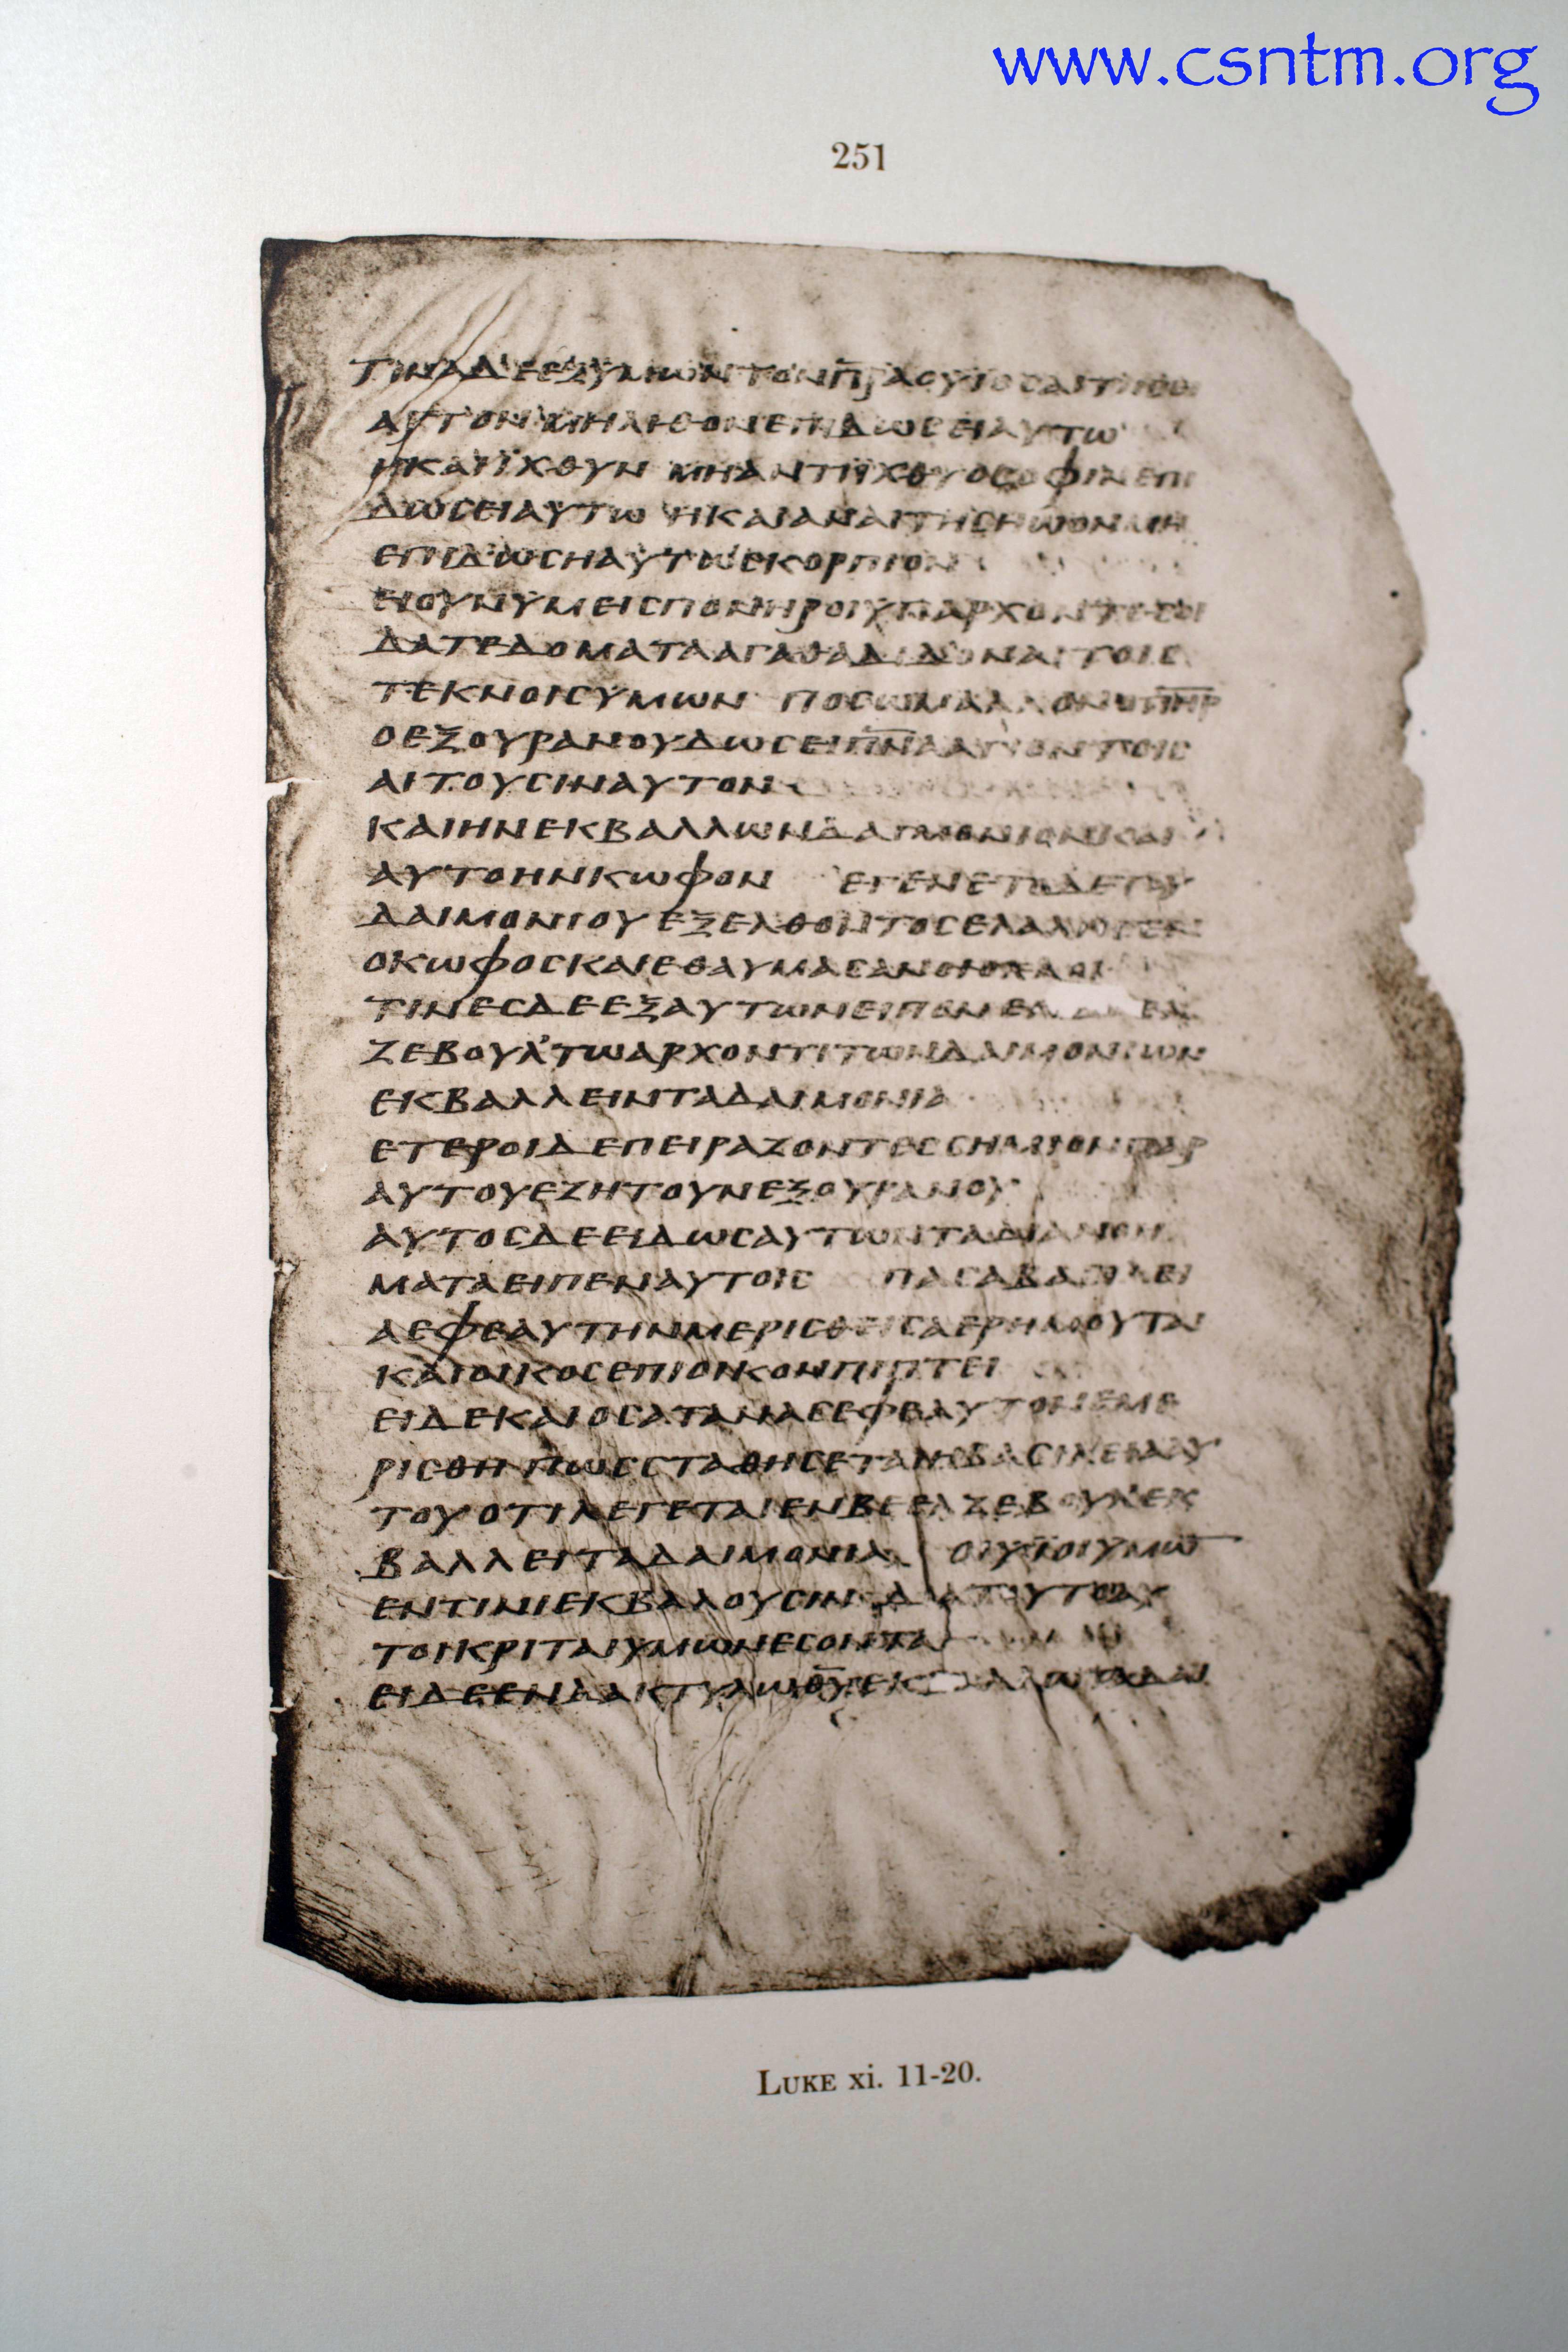 www.csntm.org
251
ΤΙΝΑΔΕΕΞΥΜΩΝΤΟΝΠΡΑΟΥΙΟΣΑΙΤΗΣΕΙ
ΑΡΤΟΝ ΜΗΛΙΘΟΝΕΠΙΔΩСΕΙΑΥΤΩ
ΗΚΑΙΪΧΘΥΝ ΜΗΑΝΤΙΪΧΘΥΟСΟΦΙΝΕΠΙ
ΔΩСΕΙΑΥΤΩ ΗΚΑΙΑΝΑΙΤΗСΗΩΟΝΜΗ
ΕΠΙΔΩСΗΑΥΤΩСΚΟΡΠΙΟΝ
ΕΙΟΥΝΥΜΕΙСΠΟΝΗΡΟΙΥΠΑΡΧΟΝΤΕСΟΙ
ΔΑΤΕΔΟΜΑΤΑΑΓΑΘΑΔΙΔΟΝΑΙΤΟΙС
ΤΕΚΝΟΙСΥΜΩΝ ΠΟСΩΜΑΛΛΟΝΟΠΗΡ
ΟΕΞΟΥΡΑΝΟΥΔΩСΕΙΠΝΑΑΓΙΟΝΤΟΙС
ΑΙΤΟΥСΙΝΑΥΤΟΝ
ΚΑΙΗΝΕΚΒΑΛΛΩΝΔΑΙΜΟΝΙΟΝΚΑΙ
ΑΥΤΟΗΝΚΩΦΟΝ ΕΓΕΝΕΤΟΔΕΤΟΥ
ΔΑΙΜΟΝΙΟΥΕΞΕΛΘΟΝΤΟСΕΛΑΛΗСΕΝ
ΟΚΩΦΟСΚΑΙΕΘΑΥΜΑСΑΝΟΙΟΧΛΟΙ
ΤΙΝΕСΔΕΕΞΑΥΤΩΝΕΙΠΟΝ
ΖΕΒΟΥΛΤΩΑΡΧΟΝΤΙΤΩΝΔΑΙΜΟΝΙΩΝ
ΕΚΒΑΛΛΕΙΝΤΑΔΑΙΜΟΝΙΑ
ΕΤΕΡΟΙΔΕΠΕΙΡΑΖΟΝΤΕССΗΜΙΟΝΠΑΡ
ΑΥΤΟΥΕΖΗΤΟΥΝΕΞΟΥΡΑΝΟΥ
ΑΥΤΟСΔΕΕΙΔΩСΑΥΤΩΝΤΑΔΙΑΝΟΗ
ΜΑΤΑΕΙΠΕΝΑΥΤΟΙС ΠΑСΑΒΑСΙΛΕΙ
ΑΕΦΕΑΥΤΗΝΜΕΡΙСΘΕΙСΑΕΡΗΜΟΥΤΑΙ
ΚΑΙΟΙΚΟСΕΠΙΟΙΚΟΝΠΙΠΤΕΙ
ΕΙΔΕΚΑΙΟСΑΤΑΝΑСΕΦΕΑΥΤΟΝΕΜΕ
ΡΙСΘΗΠΩССΤΑΘΗСΕΤΑΙΗΒΑСΙΛΕΙΑΑΥ
ΤΟΥΟΤΙΛΕΓΕΤΑΙΕΝΒΕΕΛΖΕΒΟΥΛΕΚ
ΒΑΛΛΕΙΤΑΔΑΙΜΟΝΙΑ ΟΙΥΪΟΙΥΜΩ̅
ΕΝΤΙΝΙΕΚΒΑΛΟΥСΙΝΔΙΑΤΟΥΤΟΑΥ
ΤΟΙΚΡΙΤΑΙΥΜΩΝΕСΟΝΤΑΙ
ΕΙΔΕΕΝΔΑΚΤΥΛΩΘΥΕΚ
LUKE xi. 11-20.